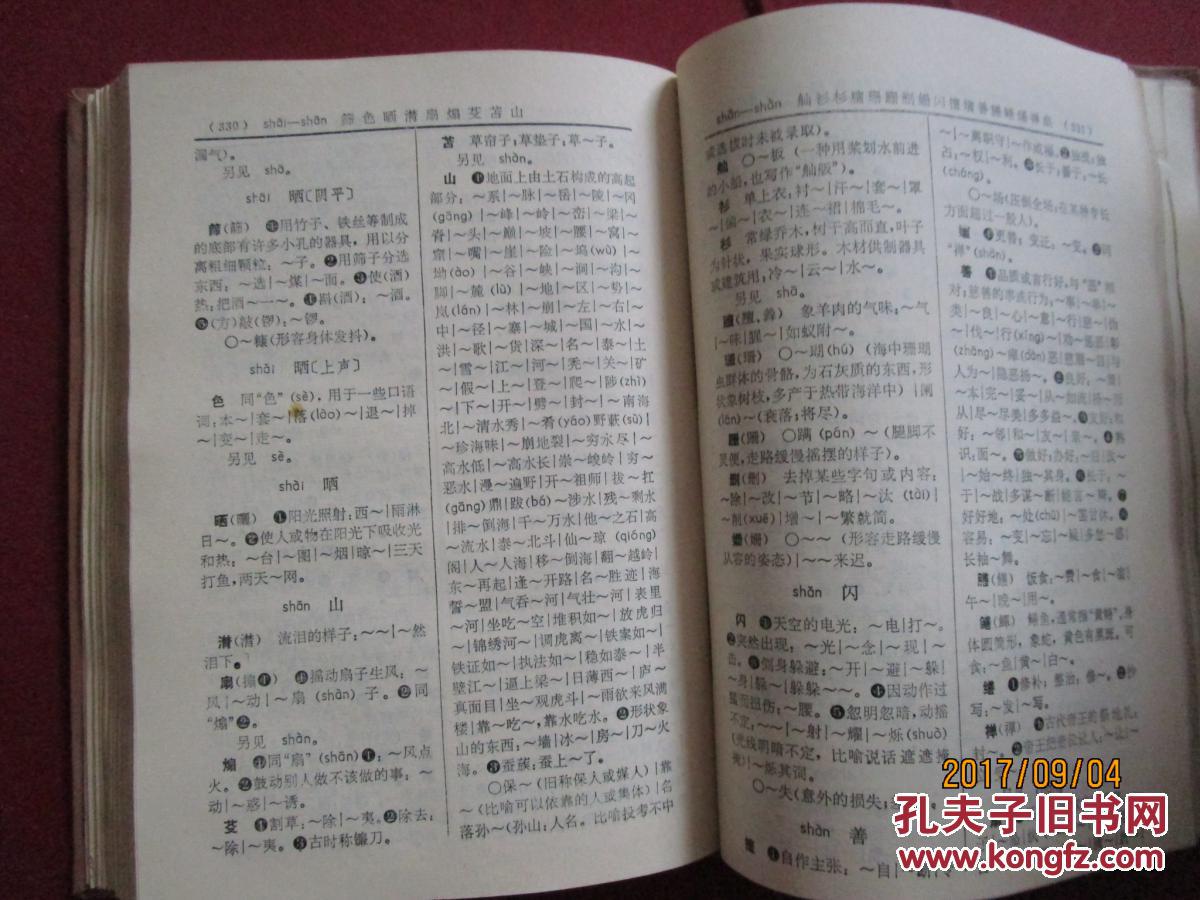 (330) shāi—shān 筛色晒潸扇煽芟苫山
漏气)。
另见 shā。
shāi 晒〔阴平〕
筛(篩) ❶用竹子、铁丝等制成
的底部有许多小孔的器具,用以分
离粗细颗粒:~子。❷用筛子分选
东西:~选|~煤|~面。❸使(酒)
热:把酒~一~。❹斟(酒):~酒。
❺(方)敲(锣):~锣。
○~糠(形容身体发抖)。
shǎi 晒〔上声〕
色 同“色”(sè),用于一些口语
词:本~|套~|落(lào)~|退~|掉
~|变~|走~。
另见 sè。
shài 晒
晒(曬) ❶阳光照射:西~|雨淋
日~。❷使人或物在阳光下吸收光
和热:~台|~图|~烟|晾~|三天
打鱼,两天~网。
shān 山
潸(潸) 流泪的样子:~~|~然
泪下。
扇(搧❶) ❶摇动扇子生风:~
风|~动|~扇(shàn)子。❷同
“煽”❷。
另见 shàn。
煽 ❶同“扇”(shān)❶:~风点
火。❷鼓动别人做不该做的事:~
动|~惑|~诱。
芟 ❶割草:~除|~夷。❷除去:
~除|~夷。❸古时称镰刀。
苫 草帘子;草垫子:草~子。
另见 shàn。
山 ❶地面上由土石构成的高起
部分:~系|~脉|~岳|~陵|~冈
(gāng)|~峰|~岭|~峦|~梁|~
脊|~头|~巅|~坡|~腰|~窝|~
窟|~嘴|~崖|~险|~坞(wù)|~
坳(ào)|~谷|~峡|~涧|~沟|~
脚|~麓(lù)|~地|~区|~势|~
岚(lán)|~林|~崩|~左|~右|~
中|~径|~寨|~城|~国|~水|~
洪|~歌|~货|深~|名~|泰~|土
~|雪~|江~|河~|秃~|关~|矿
~|假~|上~|登~|爬~|陟(zhì)
~|下~|开~|劈~|封~|~南海
北|~清水秀|~肴(yáo)野蔌(sù)|
~珍海味|~崩地裂|~穷水尽|~
高水低|~高水长|崇~峻岭|穷~
恶水|漫~遍野|开~祖师|拔~扛
(gāng)鼎|跋(bá)~涉水|残~剩水
|排~倒海|千~万水|他~之石|高
~流水|泰~北斗|仙~琼(qióng)
阁|人~人海|移~倒海|翻~越岭|
东~再起|逢~开路|名~胜迹|海
誓~盟|气吞~河|气壮~河|表里
~河|坐吃~空|堆积如~|放虎归
~|锦绣河~|调虎离~|铁案如~|
铁证如~|执法如~|稳如泰~|半
壁江~|逼上梁~|日薄西~|庐~
真面目|坐~观虎斗|~雨欲来风满
楼|靠~吃~,靠水吃水。❷形状象
山的东西:~墙|冰~|房~|刀~火
海。❸蚕蔟:蚕上~了。
○~保~(旧称保人或媒人)|靠
~(比喻可以依靠的人或集体)|名
落孙~(孙山:人名。比喻投考不中
或选拔时未被录取)。
舢 ○~板(一种用桨划水前进
的小船,也写作“舢版”)。
衫 单上衣:衬~|汗~|套~|罩
~|偏~|~衣|~连~裙|棉毛~。
杉 常绿乔木,树干高而直,叶子
为针状,果实球形。木材供制器具
或建筑用:冷~|云~|水~。
另见 shā。
象羊肉的气味:~气
|~味|腥~|如蚁附~。
珊(珊) ○~瑚(hú)(海中珊瑚
虫群体的骨骼,为石灰质的东西,形
状象树枝,多产于热带海洋中)|阑
(lán)~(衰落;将尽)。
跚(跚) ○蹒(pán)~(腿脚不
灵便,走路缓慢摇摆的样子)。
删(刪) 去掉某些字句或内容:
~除|~改|~节|~略|~汰(tài)|
~削(xuē)|增~|~繁就简。
姗(姍) ○~~(形容走路缓慢
从容的姿态)|~~来迟。
shǎn 闪
闪 ❶天空的电光:~电|打~。
❷突然出现:~光|~念|~现|~
击。❸侧身躲避:~开|~避|~躲|
~身|躲~|躲躲~~。❹因动作过
猛而扭伤:~腰。❺忽明忽暗,动摇
不定:~~|~射|~耀|~烁(shuò)
(光线明暗不定,比喻说话遮遮掩
掩)|~烁其词。
○~失(意外的损失:
shàn 善
擅 ❶自作主张:~自|~
~|~离职守|~作威福。❷独揽;独
占:~权|~利。❸长于;善于:~长
(cháng)。
○~场(压倒全场;在某种专长
方面超过一般人)。
嬗 ❶更替;变迁:~变。❷同
“禅”(shàn)。
善 ❶品质或言行好,与“恶”相
对;慈善的事或行为:~事|~举|~
类|~良|~心|~意|~行|
人为~|隐恶扬~。❷良好:
从|尽~尽美|多多益~。❸友好;和
好:~邻|和~|友~|亲~。❹熟
识:面~。❺做好;办好:
~|~始~终|独~其身。❻长于:~
于|~战|多谋~断|能言~辩。❼
好好地:~处(chǔ)|~罢甘休。❽
容易:~变|~忘|~疑|多愁~感|
长袖~舞。
膳(饍) 饭食:~费|~食|~宿|
午~|晚~|用~。
鳝(鱓) 鳝鱼,通常指“黄鳝”,身
体圆筒形,象蛇,黄色有黑斑。可
食:~鱼|黄~|白~。
缮 ❶修补;整治:修~。❷抄
写:~发|~写。
禅(禪) ❶古代帝王的祭地礼:
封~。❷帝王把帝位让人:~让|~
2017/09/04
孔夫子旧书网
www.kongfz.com